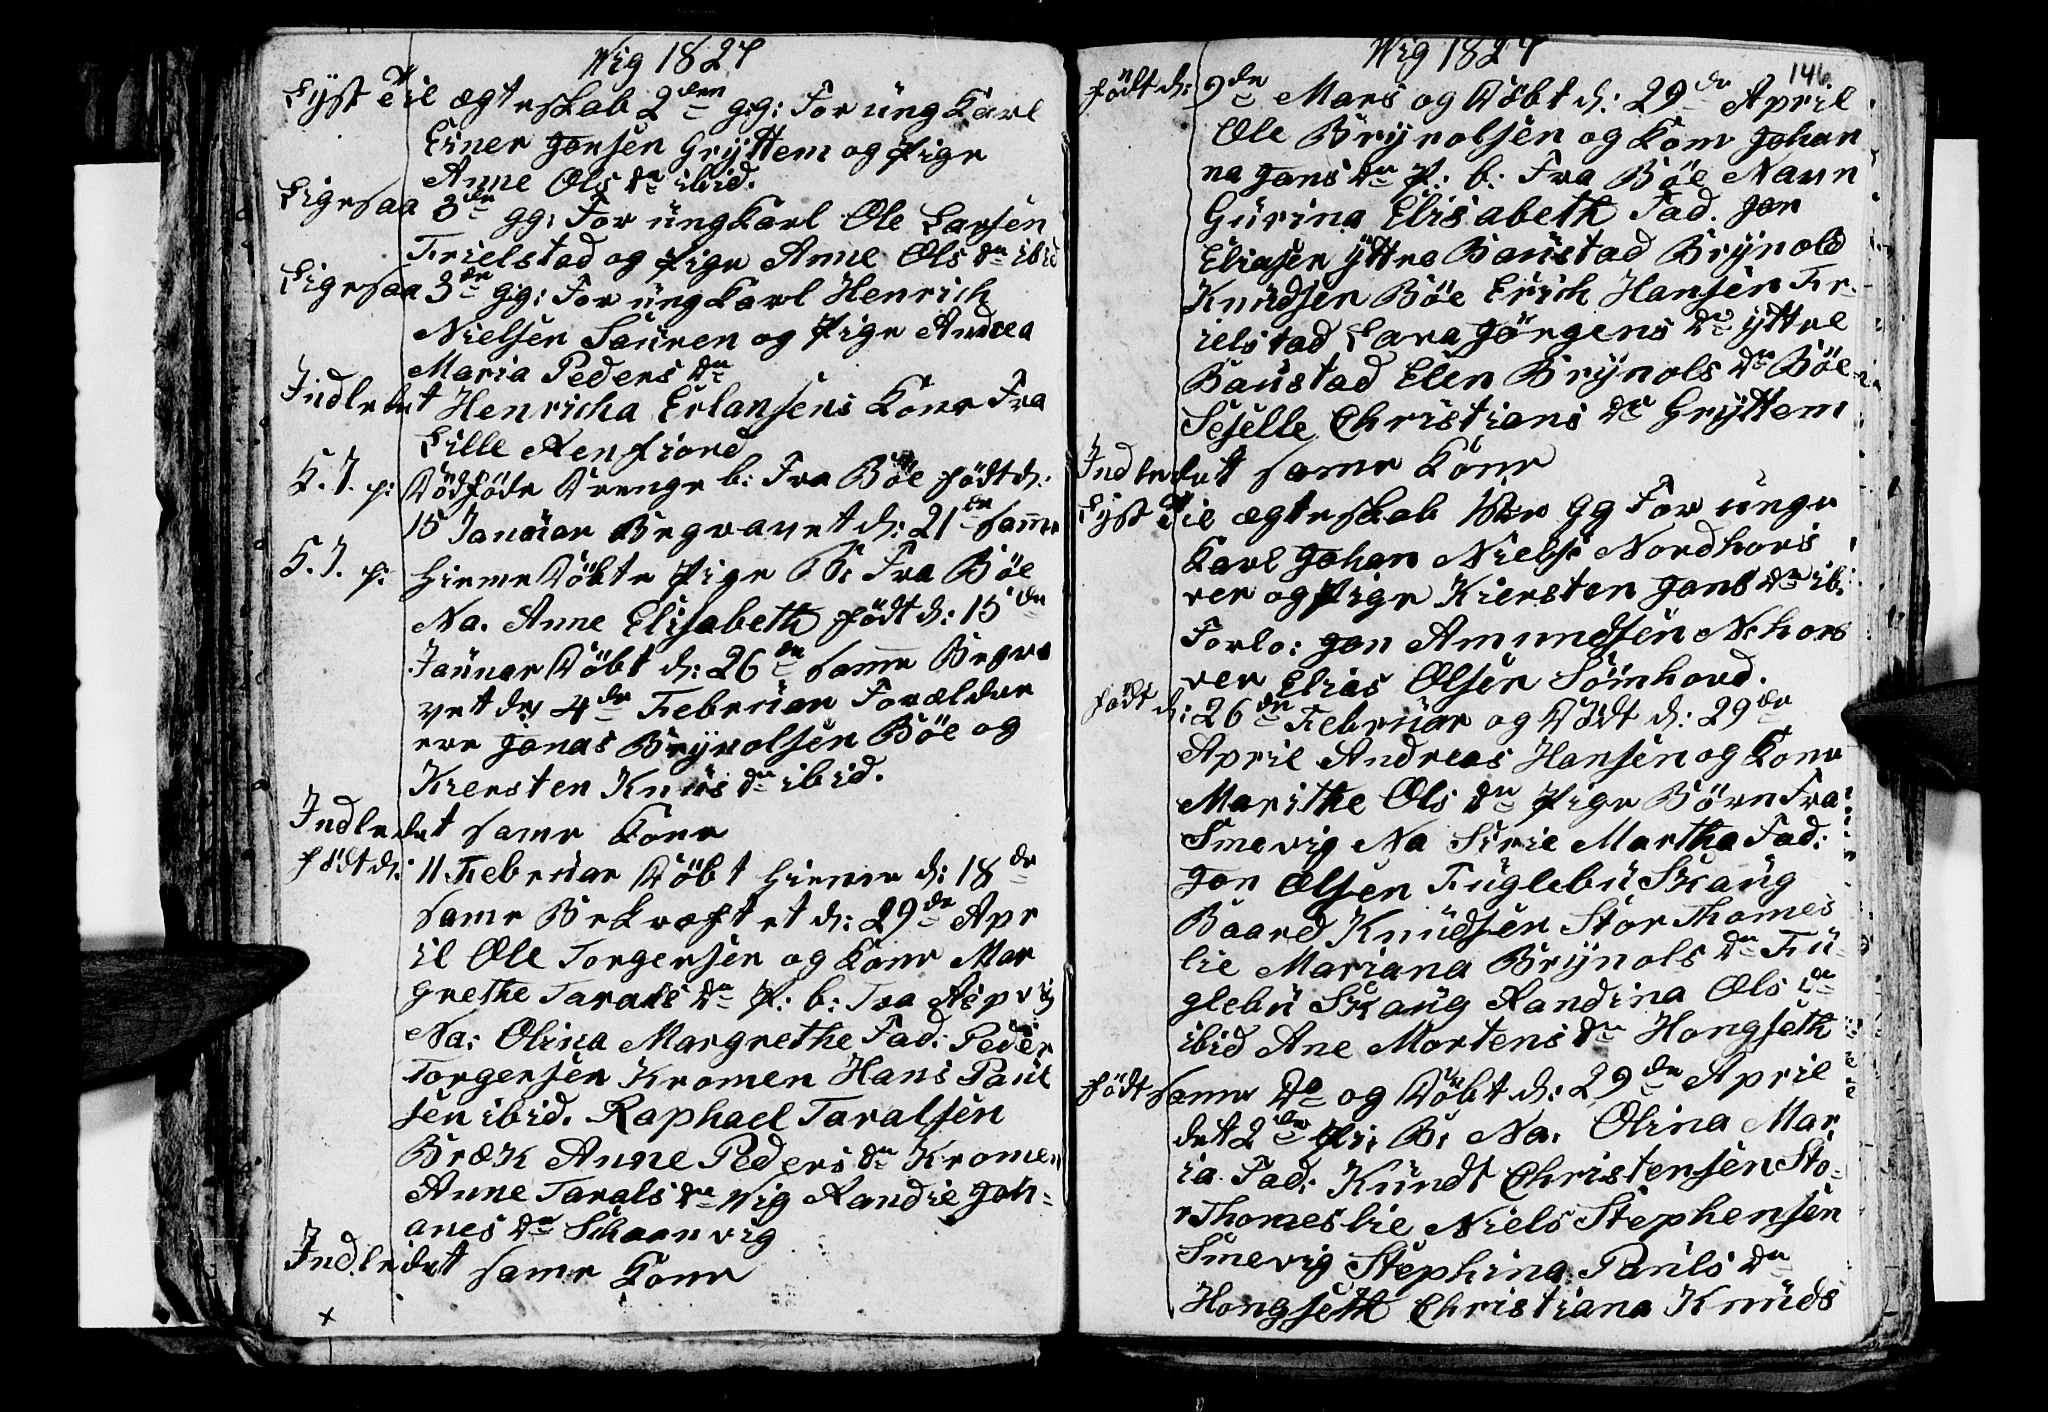 Wig 1827
Lyst Til ægteskab 2den gg: For ung Karl
Einer Jonsen Gryttem og Pige
Anne Ols Dr ibid.
Ligesaa 3de gg: For ung Karl Ole Larsen
Frielstad og Pige Anne Ols Dr ibid
Ligesaa 3de gg: For ung Karl Henrich
Nielsen Sauren og Pige Andrea
Maria Peders Dr
Indledet Henricha Erlansens Kone Fra
Lille Aenfiord
S. J. p: Dödföde Drenge b: Fra Böe födt d:
15 Januar Begravet d: 21de samme
S. J. p: hieme Döbte Pige B: Fra Böe
Na. Anne Elisabeth födt d: 15de
Januar Döbt d: 26de samme Begra
vet den 4de Februar Forælder
ere Jonas Brynolsen Böe og
Kiersten Knus Dr ibid.
Indledet same Kone
födt d: 11 Februar Döbt hieme d: 18de
same Bekræftet d: 29de Apr
il Ole Torgersen og Kone Mar
grethe Tarals Dr P: b: Fra Aspvig
Na: Olina Margrethe Fad: Peder
Torgersen Kromen Hans Paul
sen ibid. Raphael Taralsen
Bræk Anne Peders Dr Kromen
Anne Tarals Dr Wig Randie Joh-
anes Dr Skarvig
Indledet same Kone
x
Wig 1827
146
födt d: 9de Mars og Döbt d: 29de April
Ole Brynolsen og Kom Johan
na Jans Dr P: b: Fra Böe Navn
Gurina Elisabeth Fad. Jon
Eliasen yttre Baustad Brynold
Knudsen Böe Erich Hansen Fr-
ielstad Lava Jörgens Dr yttre
Baustad Elen Brynols Dr Böe
Seselle Christians Dr Gryttem
Indledet same Kone
Lyst Til ægteskab 1ste gg For unge
Karl Johan Niels: Nordhors
ver og Pige Kiersten Jans Dr ib:
Forlo: Jon Amundsen N:hors
ver Elias Olsen Sörnhord.
födt d: 26de Februar og Döbt d: 29de
April Andreas Hansen og Kone
Marithe Ols Dr Pige Börn Fra
Smevig Na Sirie Martha Fad:
Jon Olsen Fuglebu Skaug
Baard Knudsen Stor Thomes
lie Mariana Brynols Dr Fu-
glebu Skaug Randina Ols Dr
ibid Ane Mortens Dr Hongseth
födt same Do og Döbt d: 29de April
det 2det Pi: B: Na: Olina Mar
ia Fad: Kundt Christensen Sto-
r Thomeslie Niels Stephensen
Smevig Stephina Pauls Dr
Hongseth Christiana Knuds